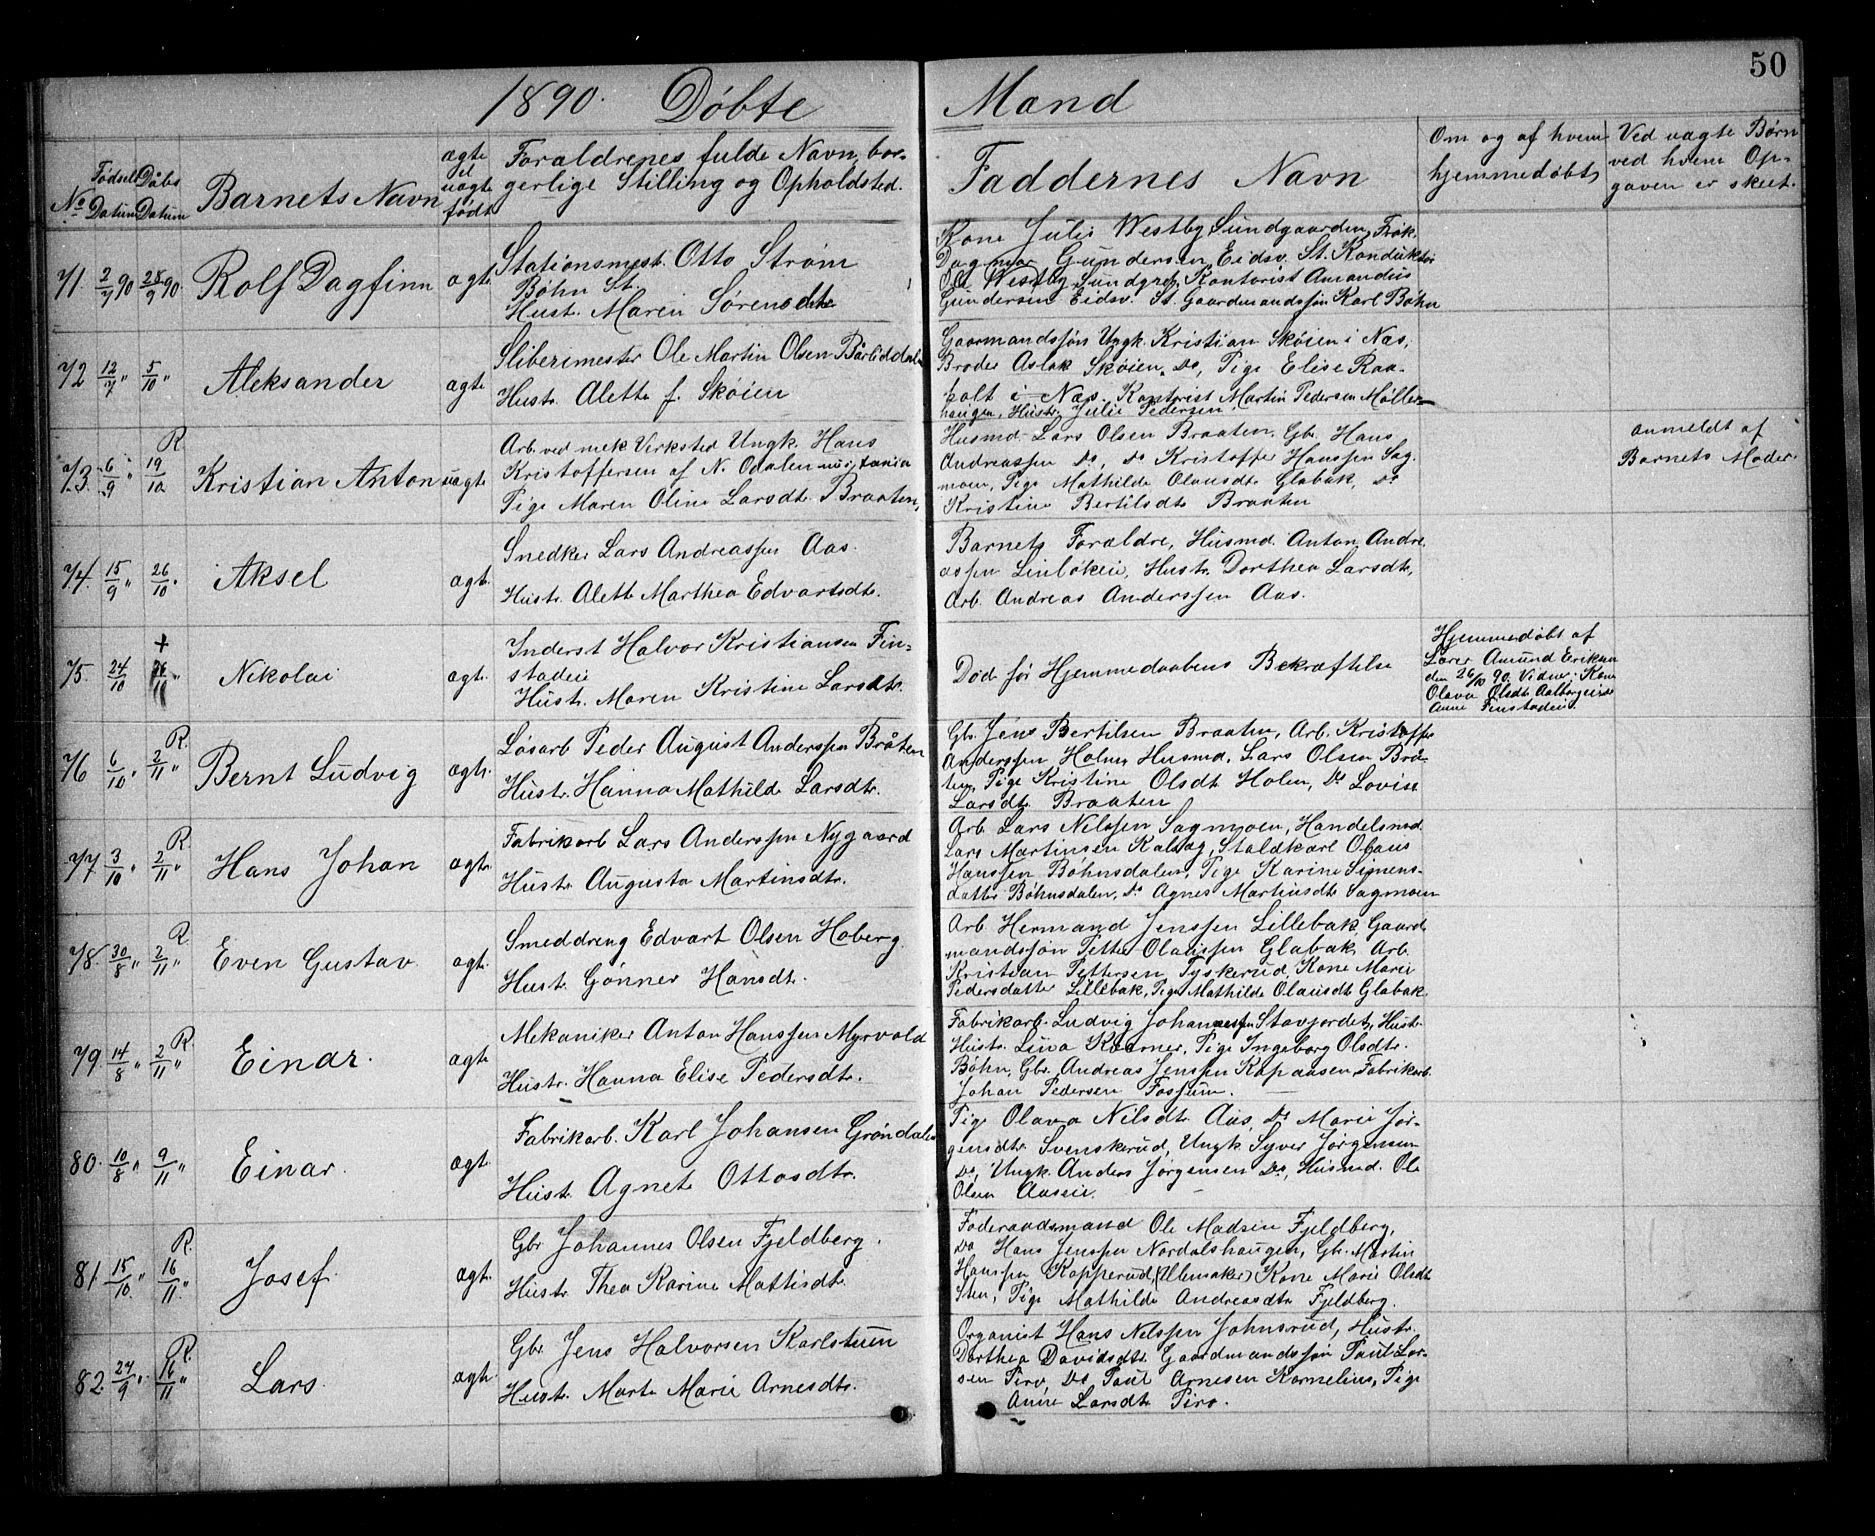 50
1890. Döbte Mænd
No
Fødsels Datum
Dåbs Datum
Barnets Navn
ægte el uægte født
Forældrenes fulde Navn, bor-
gerlige Stilling og Opholdsted.
Faddernes Navn
Om og af hvem
hjemmedøbt,
Ved uægte Børn
ved hvem Op-
gaven er skeet.
71. 2/7 90 28/9 90. Rolf Dagfinn ægte
Stationsmest. Otto Strøm
Bøhn St.
Hust. Maren Sørensdtr
Kone Julie Westby Sundgaarden, Frøk.
Dagmar Gundersen, Eidsv. St. Konduktør
Ole Westby Sundgrd, Kontorist Amandus
Gundersen Eidsv. St. Gaardmandssøn Karl Bøhn
72 12/7 " 5/10 " Aleksander ægte
Sliberimester Ole Martin Olsen Bårliddalen
Hustr. Alette f. Sköien
Gaarmandssøn Ungk. Kristian Skøien i Næs,
Broder Aslak Skøien, Do, Pige Elise Raa-
holt i Næs. Kontorist Martin Pedersen Møller-
haugen, Hustr. Julie Pedersen.
73. 6/9 " R. 19/10. Kristian Anton uægte
Arb. ved mek Verksted Ungk. Hans
Kristoffersen af N. Odalen
Pige Maren Oline Larsdtr. Braaten,
Husmd. Lars Olsen Braaten. Gbr. Hans
Andreassen Do, Do Kristoffer Hanssen Sag-
moen, Pige Mathilde Olausdtr Glabak, Do
Kristine Bertilsdtr Braaten
anmeldt af
Barnets Moder.
74. 15/9 " 26/10 " Aksel ægte
Snedker Lars Andreassen Aas.
Hustr. Alette Marthea Edvartsdtr.
Barnets Forældre, Husmd. Anton Andre-
assen Linlökei, Hustr. Dorthea Larsdtr,
Arb. Andreas Anderssen Aas.
75. 24/10 + Nikolai ægt.
Inderst Halvor Kristiansen Fin-
stadeie
Hust. Maren Kristine Larsdtr.
Død før Hjemmedaabens Bekræftelse
Hjemmedøbt af
Lærer Amund Eriksen
den 26/10 90. Vidner: Kone
Olava Olsdtr.
Anne Finstadeie.
76 6/10 " R. 2/11 " Bernt Ludvig ægte.
Løsarb Peder August Anderssen Bråten
Hustr. Hanna Mathilde Larsdtr.
Gbr. Jens Bertilsen Braaten, Arb. Kristoffer
Anderssen Holen Husmd. Lars Olsen Brå-
ten, Pige Kristine Olsdt Holen, Do Lovise
Larsdtr Braaten
77 3/10 " R. 2/11 " Hans Johan ægte.
Fabrikarb Lars Anderssen Nygaard
Hustr Augusta Martinsdtr.
Arb. Lars Nilssen Sagmoen, Handelsmd.
Lars Martinsen, Staldkarl Olaus
Hanssen Bøhnsdalen, Pige Karine Simens-
datter Bøhnsdalen, Do Agnes Martinsdtr Sagmoen
78. 30/8 " R. 2/11 " Even Gustav. ægt.
Smeddreng Edvart Olsen Hoberg.
Hustr. Gönner Hansdtr.
Arb Hermand Jenssen Lillebak, Gaard-
mandssøn Petter Olaussen Glabak, Arb.
Kristian Pettersen Tyskerud, Kone Marie
Pedersdatter Lillebak, Pige Mathilde Olausdt Glabak.
79. 14/8 " R. 2/11 " Einar. ægte
Mekaniker Anton Hanssen Myrvold
Hustr. Hanna Elise Pedersdtr.
Fabrikarb. Ludvig Johannessen Stavjordet, Hustr.
Hustr. Lina Kværner, Pige Ingeborg Olsdtr.
Bøhn, Gbr. Andreas Jenssen Kopaasen, Fabrikarb.
Johan Pedersen Fossum.
80. 10/8 " 9/11 " Einar. ægt.
Fabrikarb. Karl Johansen Gröndalen
Hustr. Agnete Ottosdtr.
Pige Olava Nilsdtr Aas, Do Marie Jør-
gensdtr. Svenskerud, Ungk. Syver Jørgensen
Do, Ungk. Anders Jørgensen Do, Husmd. Ole
Olsen Aaseie.
81 15/10 " R. 16/11 " Josef. ægt.
Gbr Johannes Olsen Fjeldberg.
Hustr. Thea Karine Mattisdtr.
Føderaadsmand Ole Madsen Fjeldberg,
Do Hans Jenssen Nordalshaugen, Gbr. Martin
Hanssen Kopperud, (Ullensaker) Kone Marie Olsdt
Sten, Pige Mathilde Andreasdtr Fjeldberg.
82. 24/9 " R. 16/11 " Lars. ægte.
Gbr. Jens Halvorsen Karlstuen
Hustr. Marte Marie Arnesdtr.
Organist Hans Nilssen Johnsrud, Hustr.
Dorthea Davidsdtr Gaardmandssøn Paul Lar-
sen Piro, Do Paul Arnesen Kornelius, Pige
Anne Larsdtr Piro.